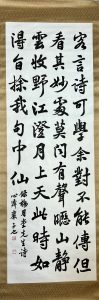 客言詩可學余對不能傳但
看其妙處莫問有聲聯山靜
雲收野江澄月上天此時如
得旨探我句中仙
錄梅月堂先生詩